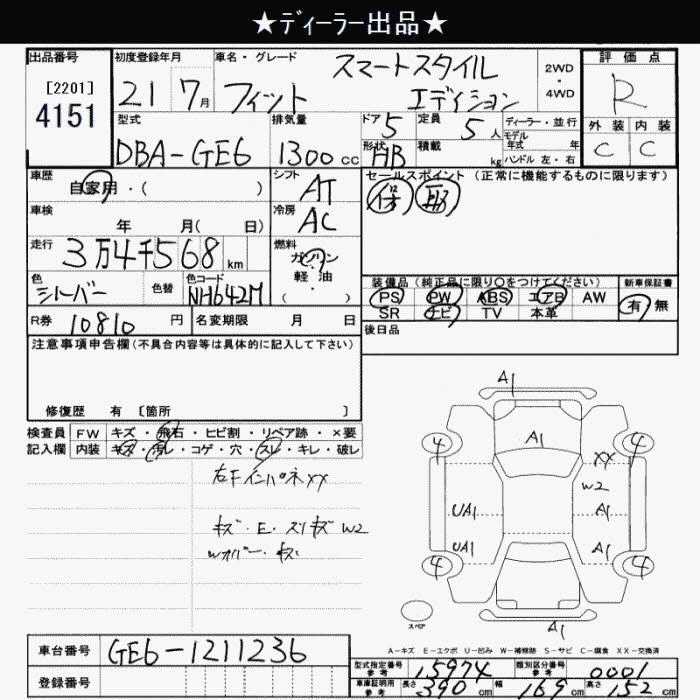 ★ディーラー出品★
出品番号 [2201] 4151
初度登録年月 21 7月
車名・グレード フィット スマートスタイル エディション
2WD・4WD
評価点 R
外装 内装
C C
型式 DBA-GE6
排気量 1300cc
ドア 5
定員 5人
形状 HB
積載 kg
ディーラー・並行
モデル年式 年
ハンドル 左・右
車歴 自家用・( )
シフト AT
セールスポイント(正常に機能するものに限ります)
保
車検 年 月( 日)
冷房 AC
走行 3万4千568km
燃料 ガソリン・軽油・( )
色 シルバー 色替
色コード NH642M
装備品(純正品に限り○をつけてください)
新車保証書
PS PW ABS エアB AW
有 無
SR ナビ TV 本革
R券 10810円
名変期限 月 日
後日品
注意事項申告欄(不具合内容等は具体的に記入して下さい)
修復歴 有 〔箇所 〕
検査員 FW キズ・飛石・ヒビ割・リペア跡・×要
記入欄 内装 キズ・汚レ・コゲ・穴・スレ・キレ・破レ
右FインパネXX
キズ・E・スリキズW2
Wカバー・キズ
A1
A1
4 4
XX
W2
UA1 A1
UA1 A1
4 4
スペア
A1
A-キズ E-エクボ U-凹み W-補修跡 S-サビ C-腐食 XX-交換済
車台番号 GE6-1211236
登録番号
型式指定番号 参考 15974
類別区分番号 参考 0001
車庫証明用 参考 長さ 390cm 幅 169cm 高さ 152cm